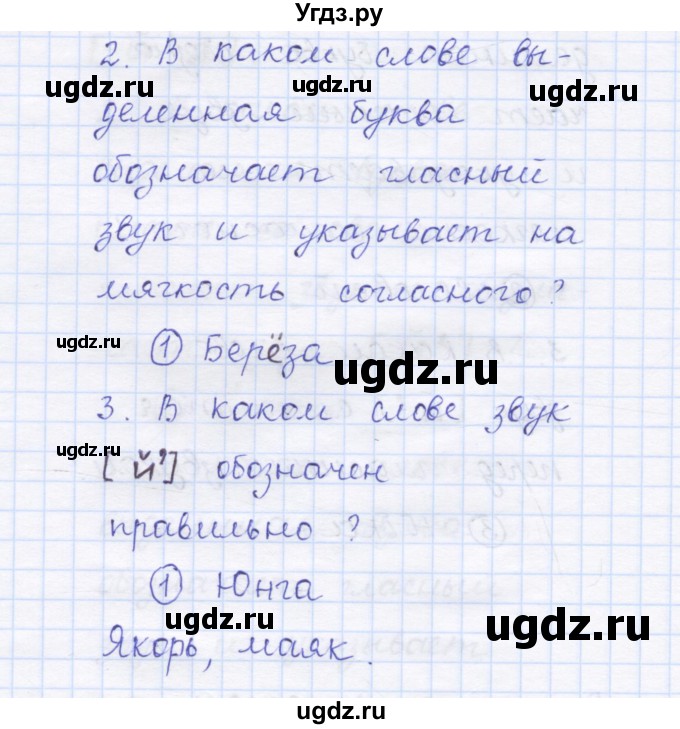 Угдз.ру
2. В каком слове вы-
ugdz.ru
ugdz.ru
деленная буква
обозначает гласный
ugdz.ru
звук и указывает на
мягкость согласного?
ugdz.ru
① Берёза
ugdz.ru
3. В каком слове звук
ugdz.ru
[й'] обозначен
ugdz.ru
правильно?
① Юнга
ugdz.ru
ugdz.ru
Якорь, маяк.
ugdz.ru
ugdz.ru